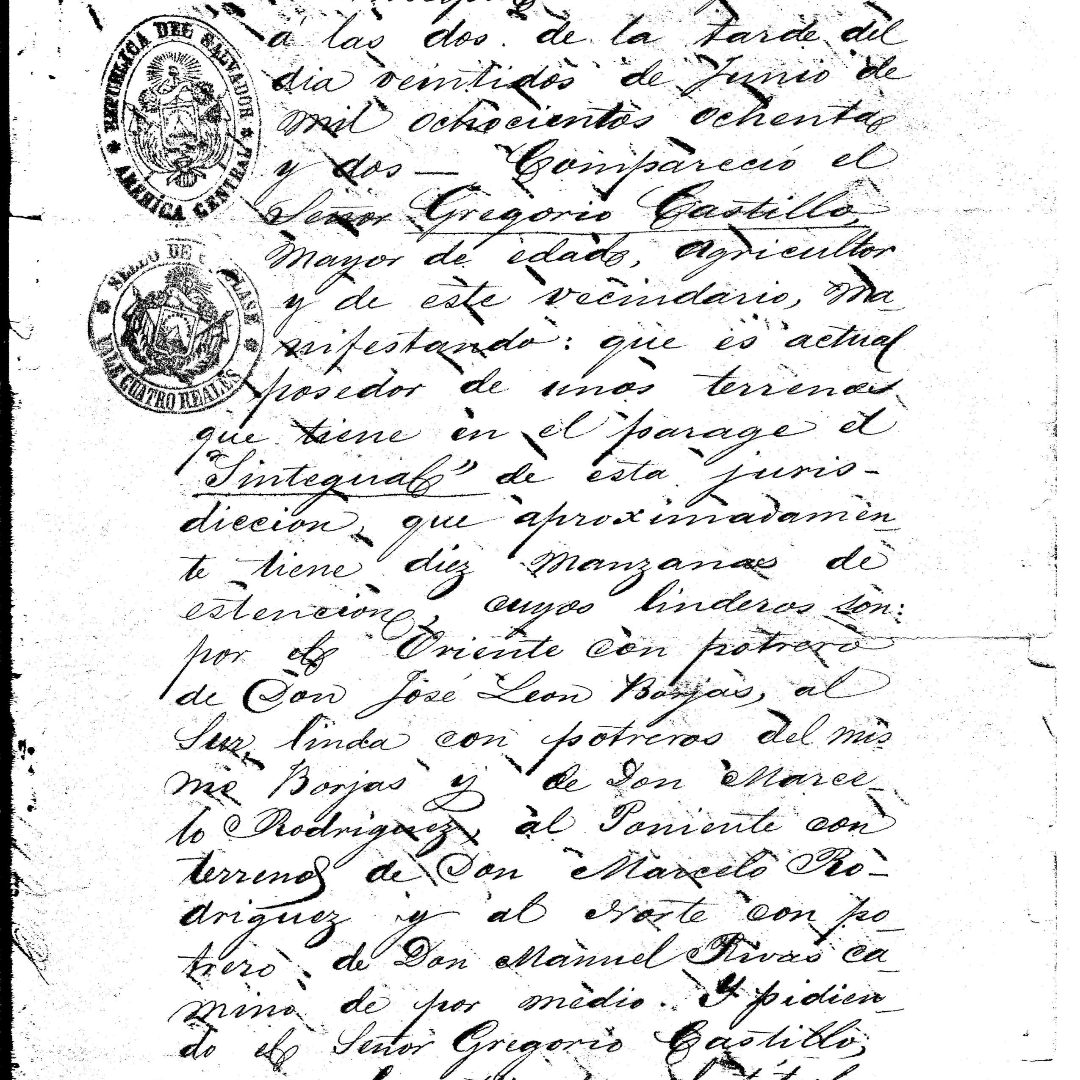 REPUBLICA DEL SALVADOR
AMERICA CENTRAL
SELLO DE CLASE
VALE CUATRO REALES
á las dos de la tarde del
dia veintidos de Junio de
mil ochocientos ochenta
y dos — Compareció el
Señor Gregorio Castillo,
Mayor de edad, agricultor
y de este vecindario, ma-
nifestando: que es actual
posedor de unos terrenos
que tiene en el parage el
"Sintegual" de esta juris-
diccion, que aproximadamen-
te tiene diez manzanas de
estencion, cuyos linderos son:
por el Oriente con potrero
de Don José Leon Borjas, al
Sur, linda con potreros del mis-
mo Borjas y de Don Marce-
lo Rodriguez, al Poniente con
terrenos de Don Marcelo Ro-
driguez y al Norte con po
trero de Don Manuel Rivas ca-
mino de por medio. Y pidien-
do el Señor Gregorio Castillo,